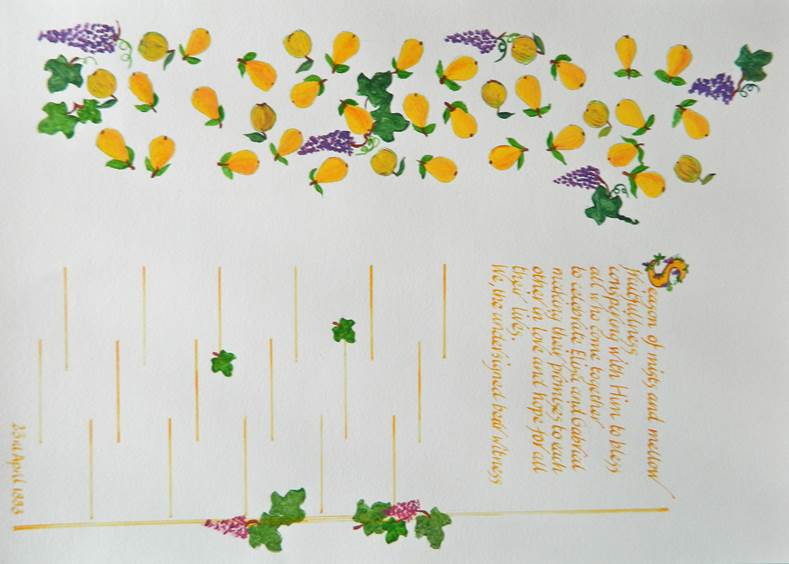 Season of mists and mellow
fruitfullness
conspiring with Him to bless
all who come together
to celebrate Eliza and Gabriel
making their promises to each
other in love and hope for all
their lives.
We, the undersigned bear witness
23rd April 1993